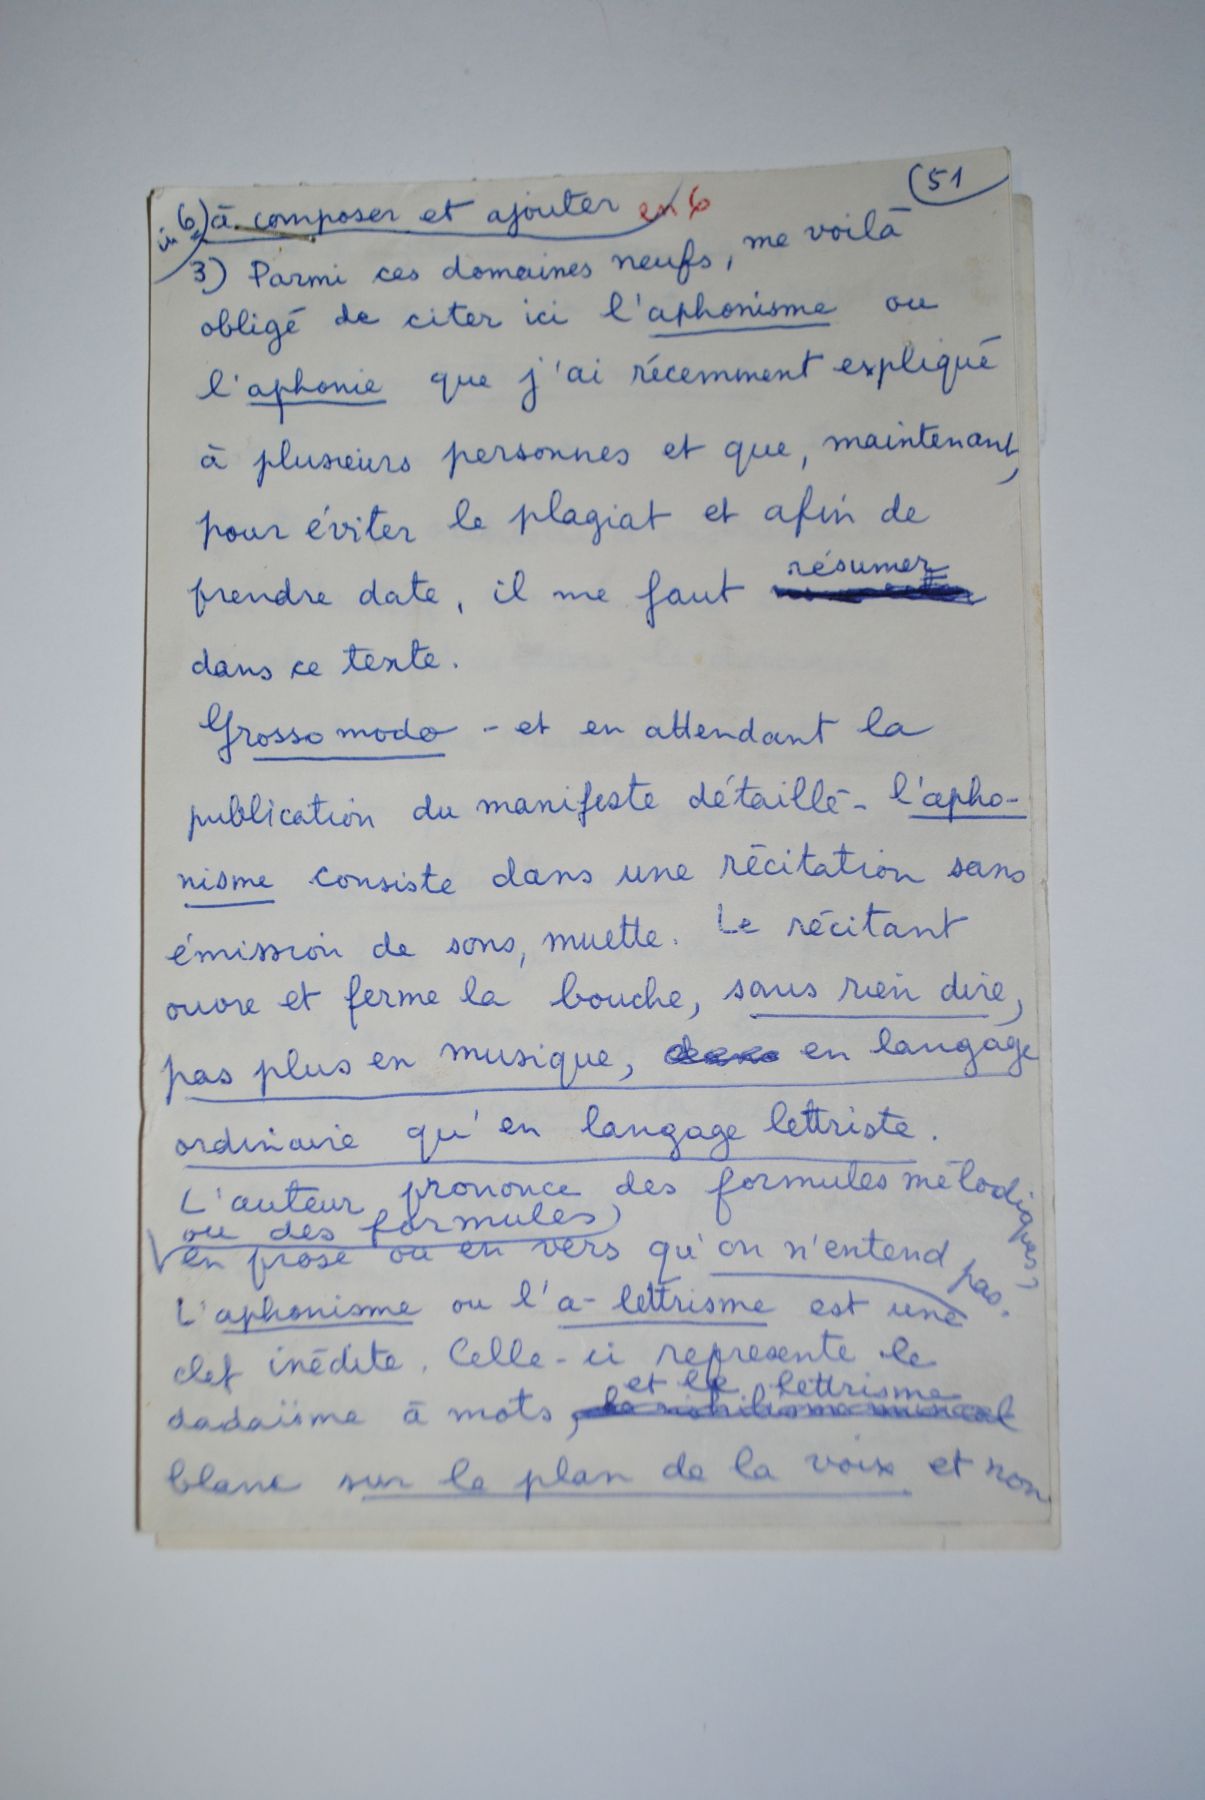 (51
in 6) à composer et ajouter en 6
3) Parmi ces domaines neufs, me voilà
obligé de citer ici l'aphonisme ou
l'aphonie que j'ai récemment expliqué
à plusieurs personnes et que, maintenant,
pour éviter le plagiat et afin de
résumer
prendre date, il me faut
dans ce texte.
Grosso modo - et en attendant la
publication du manifeste détaillé - l'apho-
nisme consiste dans une récitation sans
émission de sons, muette. Le récitant
ouvre et ferme la bouche, sans rien dire,
pas plus en musique, en langage
ordinaire qu'en langage lettriste.
L'auteur prononce des formules mélodiques,
ou des formules
en prose ou en vers qu'on n'entend pas.
L'aphonisme ou l'a-lettrisme est une
clef inédite. Celle-ci représente le
et le lettrisme
dadaïsme à mots,
blanc sur le plan de la voix et non